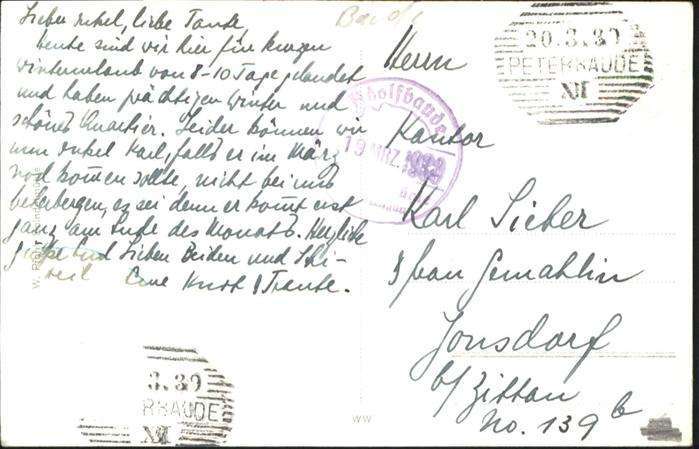 Lieber Onkel, liebe Tante,
heute sind wir hier für kurzen
Winterurlaub von 8-10 Tage gelandet
und haben prächtigen Winter und
schönes Quartier. Leider können wir
nun Onkel Karl, falls er im März
noch kommen sollte, nicht bei uns
beherbergen, es sei denn er kommt erst
ganz am Ende des Monats. Herzliche
Grüße Euch Lieben Beiden und
Eure Kurt & Traute.
Baude
Herrn
Kantor
Karl Sieber
& frau Gemahlin
Jonsdorf
b/Zittau
No. 139 b
20.3.39
PETERBAUDE
XI
Adolfbaude
19 MRZ. 1939
3.39
RBAUDE
XI
WW